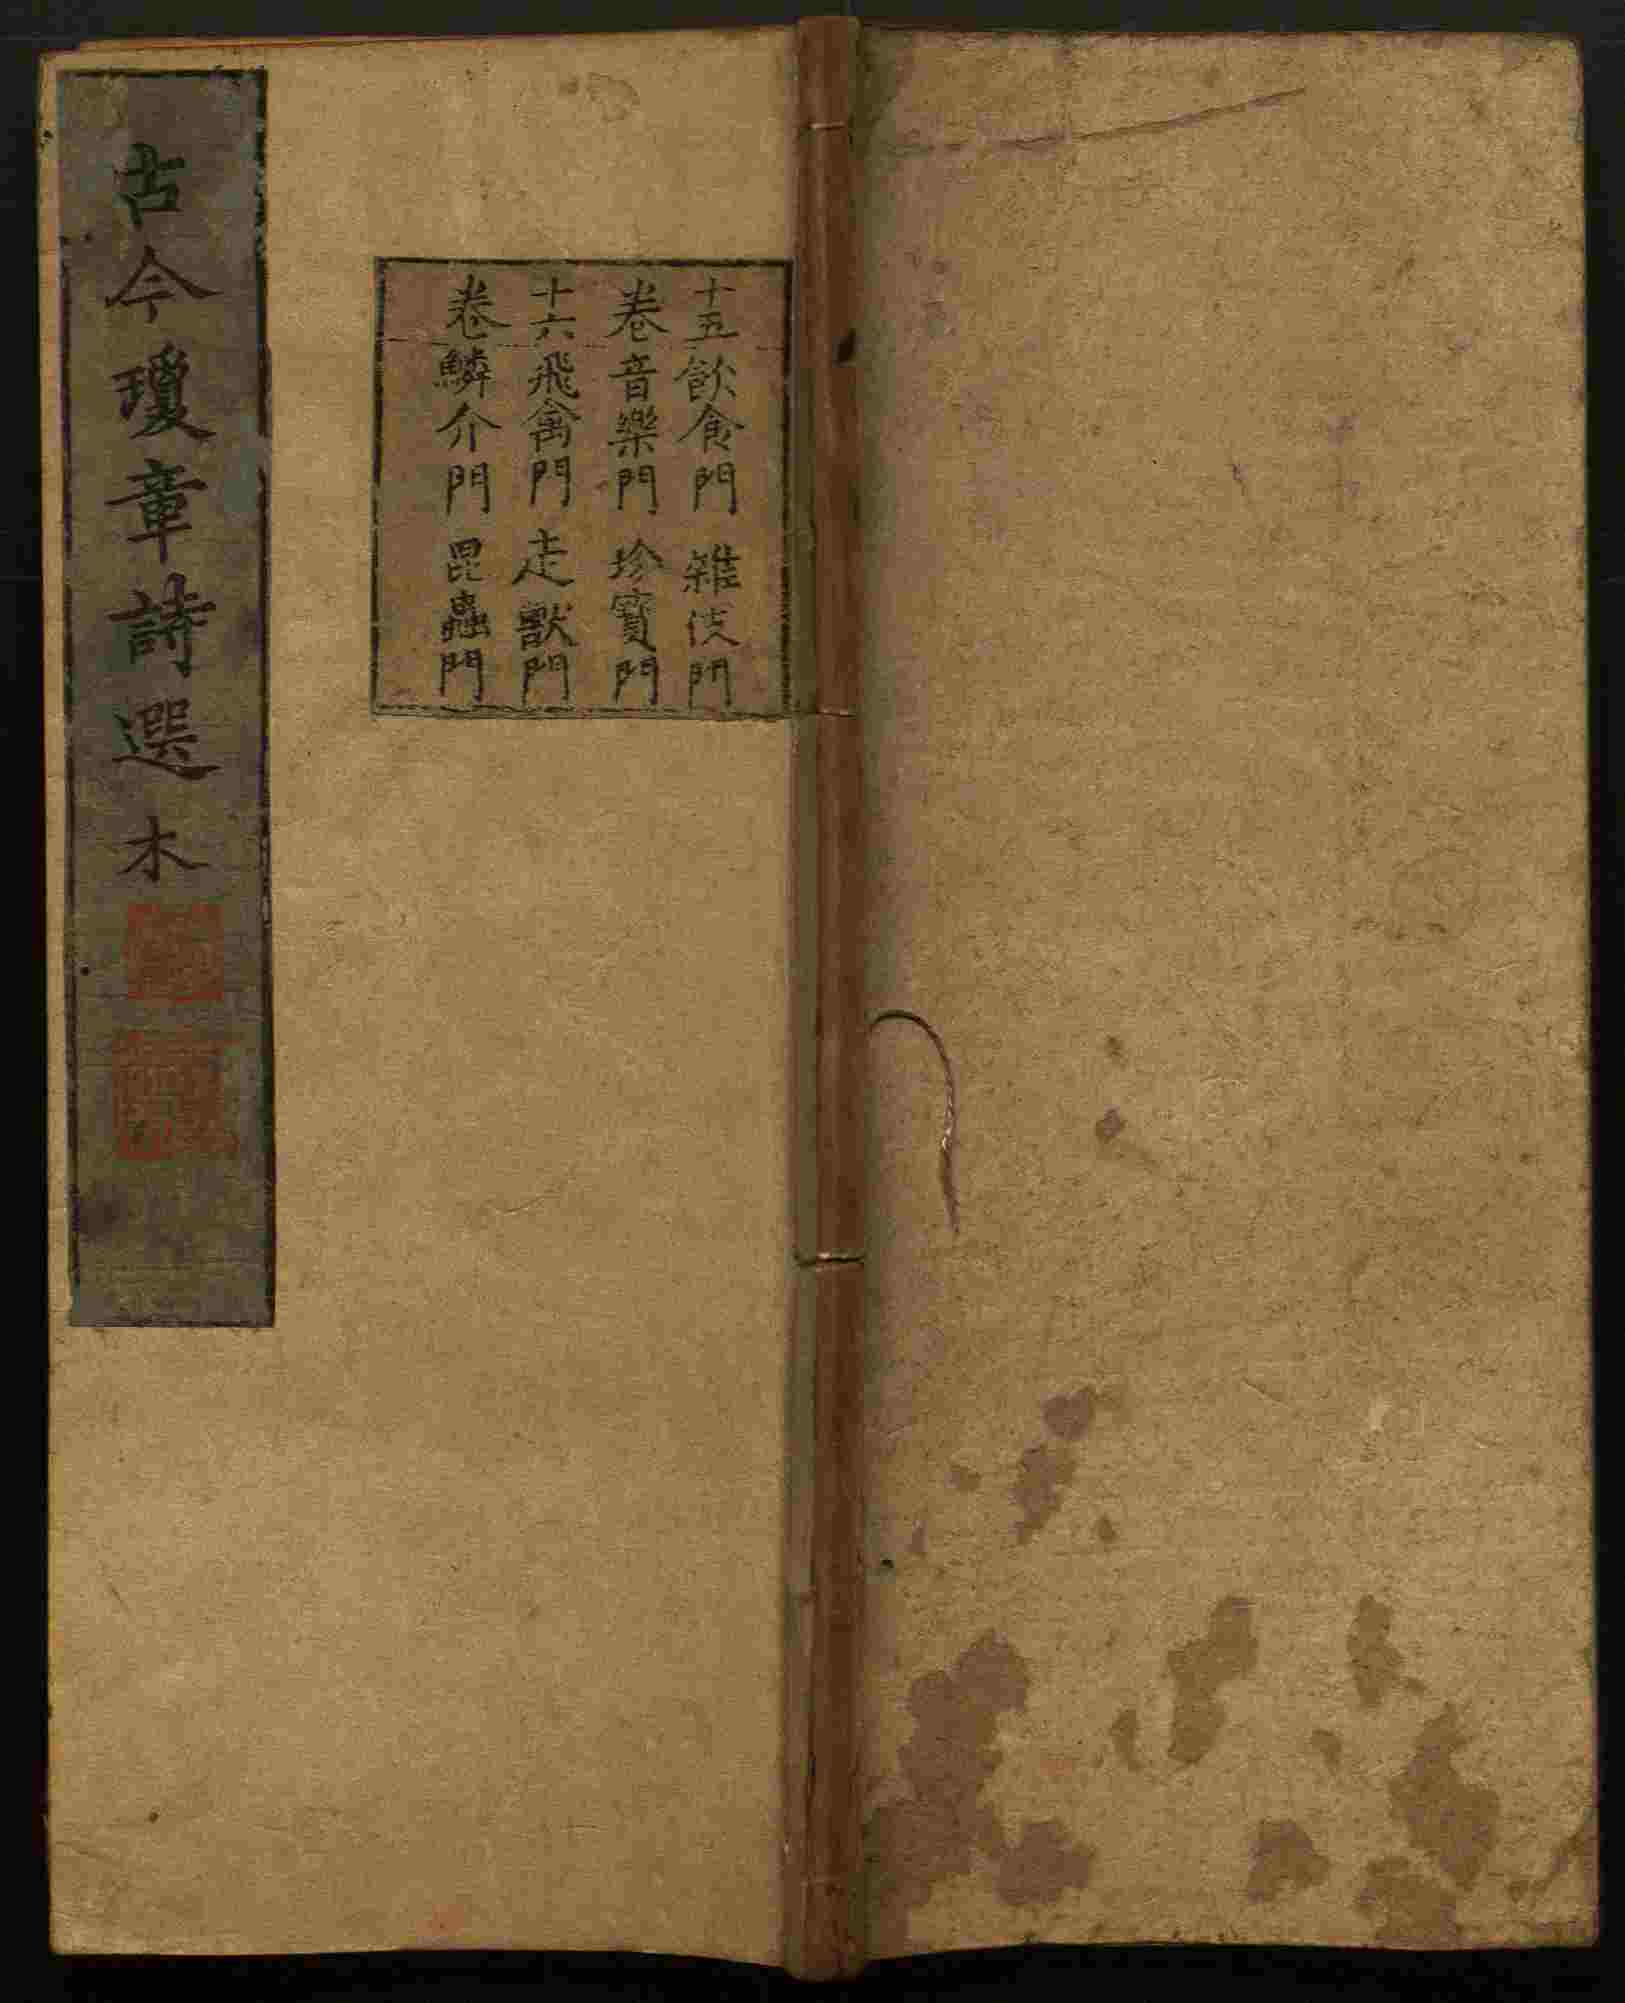 古今瓊章詩選 木
十五飲食門 雜伎門
卷音樂門 珍寶門
十六飛禽門 走獸門
卷鱗介門 昆蟲門